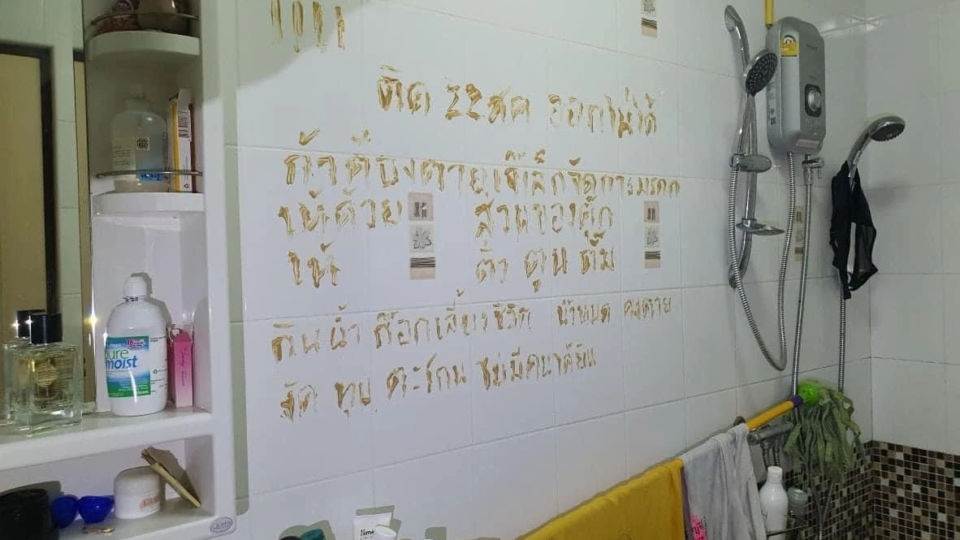 ติด 22 สค ออกไม่ได้
ถ้าต้องตายเจ๊เล็กจัดการมรดก
ให้ด้วย ส่วนของตุ๊ก
ให้ ต้า ตูน ต้ม
กินน้ำ ก๊อกเลี้ยงชีวิต น้ำหมด คงตาย
งัด ทุบ ตะโกน ไม่มีคนได้ยิน
pure
moist